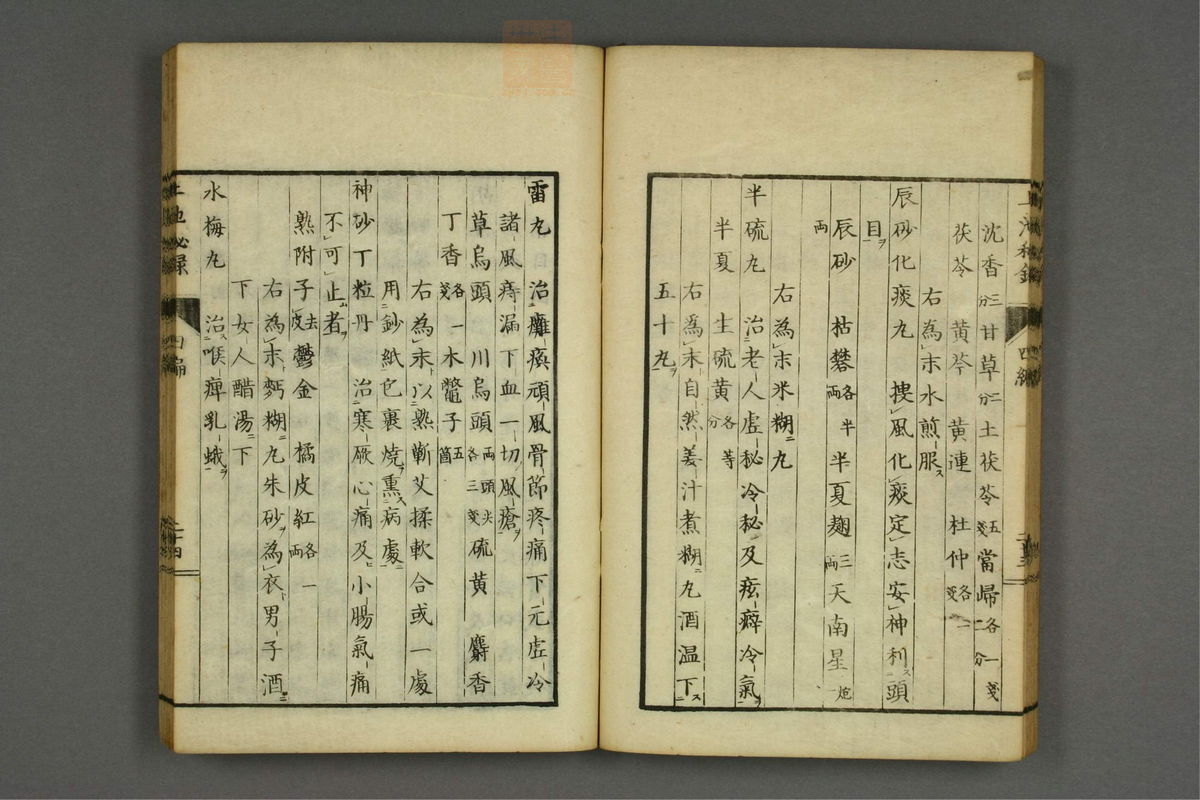 沈香三分甘草二分土茯苓五戔當歸各一戔一分
茯苓黃芩黃連杜仲各二戔
右為末水煎服ス
辰砂化痰丸 捜風化痰定志安神利ス頭
目ヲ
辰砂 枯礬各半兩半夏麹三兩天南星炮一
兩
右為末米糊ニ丸
半硫丸 治老人虚秘冷秘及痃癖冷氣ヲ
半夏 生硫黃各等分
右為末自然姜汁煮糊ニ丸酒温下ス
五十丸
四編
雷丸 治癱瘓頑風骨節疼痛下元虚冷
諸風痔漏下血一切風瘡ヲ
草烏頭川烏頭兩頭尖各三戔硫黃 麝香
丁香各一戔木鼈子五箇
右為末以熟蘄艾揉軟合或一處
用ニ鈔紙包裹燒ヲ熏ス病處ニ
神砂丁粒丹 治寒厥心痛及ヒ小腸氣痛
不可止者ヲ
熟附子去皮鬱金 橘皮紅各一兩
右為末麪糊ニ丸朱砂ヲ為衣ト男子酒ニ
下女人醋湯ニ下
水梅丸 治ス喉痺乳蛾ヲ
四編
二十四